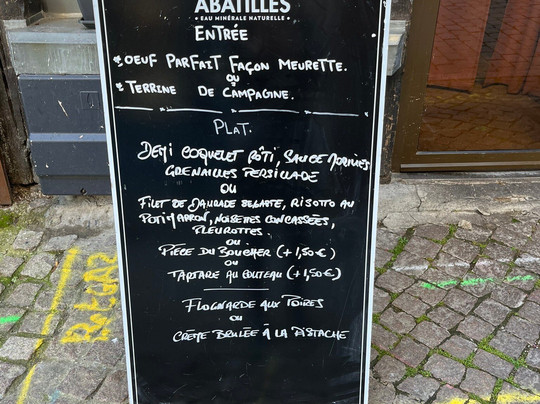 ABATILLES
• EAU MINÉRALE NATURELLE •
ENTRÉE
* OEUF PARFAIT FAÇON MEURETTE.
ou
* TERRINE DE CAMPAGNE.
PLAT.
DEMI COQUELET RÔTI, SAUCE MORILLES
GRENAILLES PERSILLADE
OU
FILET DE DAURADE SÉBASTE, RISOTTO AU
POTIMARRON, NOISETTES CONCASSÉES,
PLEUROTTES.
ou
PIÈCE DU BOUCHER (+1,50€)
ou
TARTARE AU COUTEAU (+1,50€)
FLOGNARDE AUX POIRES
ou
CRÈME BRULÉE À LA PISTACHE